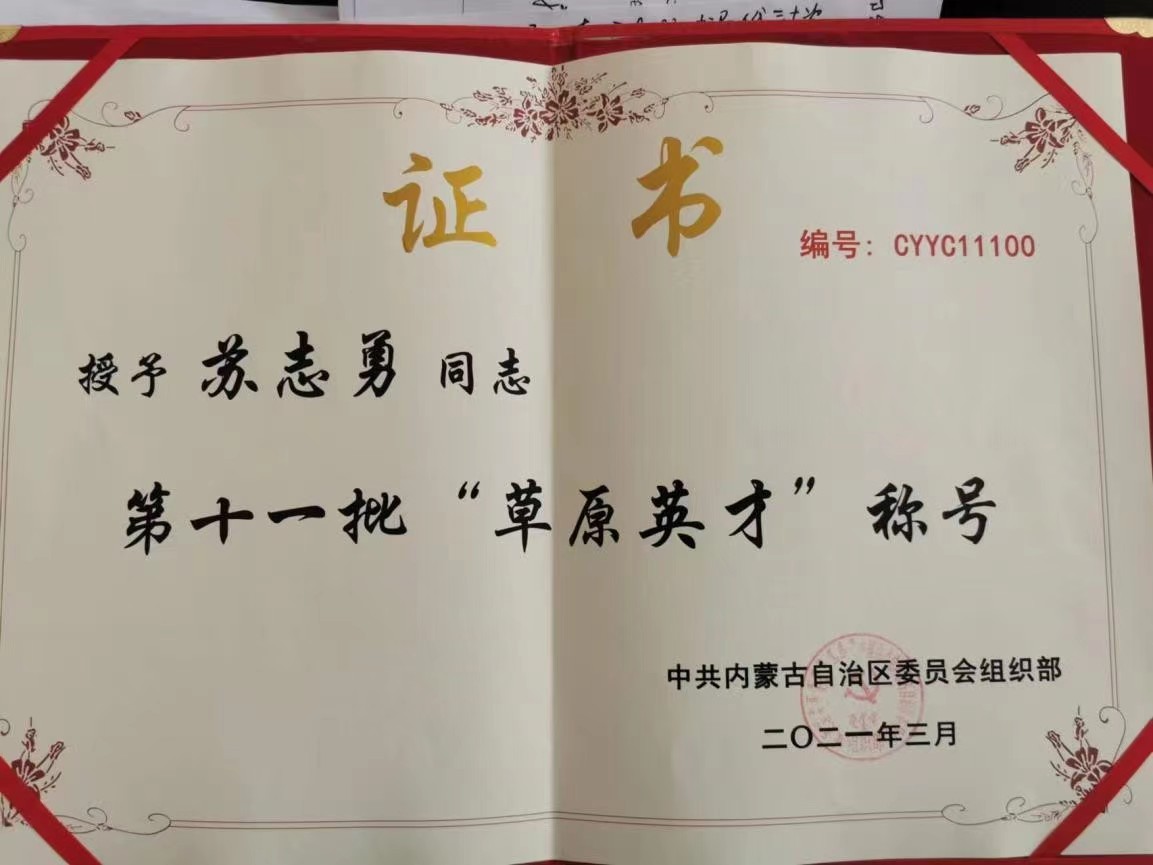 证 书
编号：CYYC11100
授予 苏志勇 同志
第十一批“草原英才”称号
中共内蒙古自治区委员会组织部
二〇二一年三月